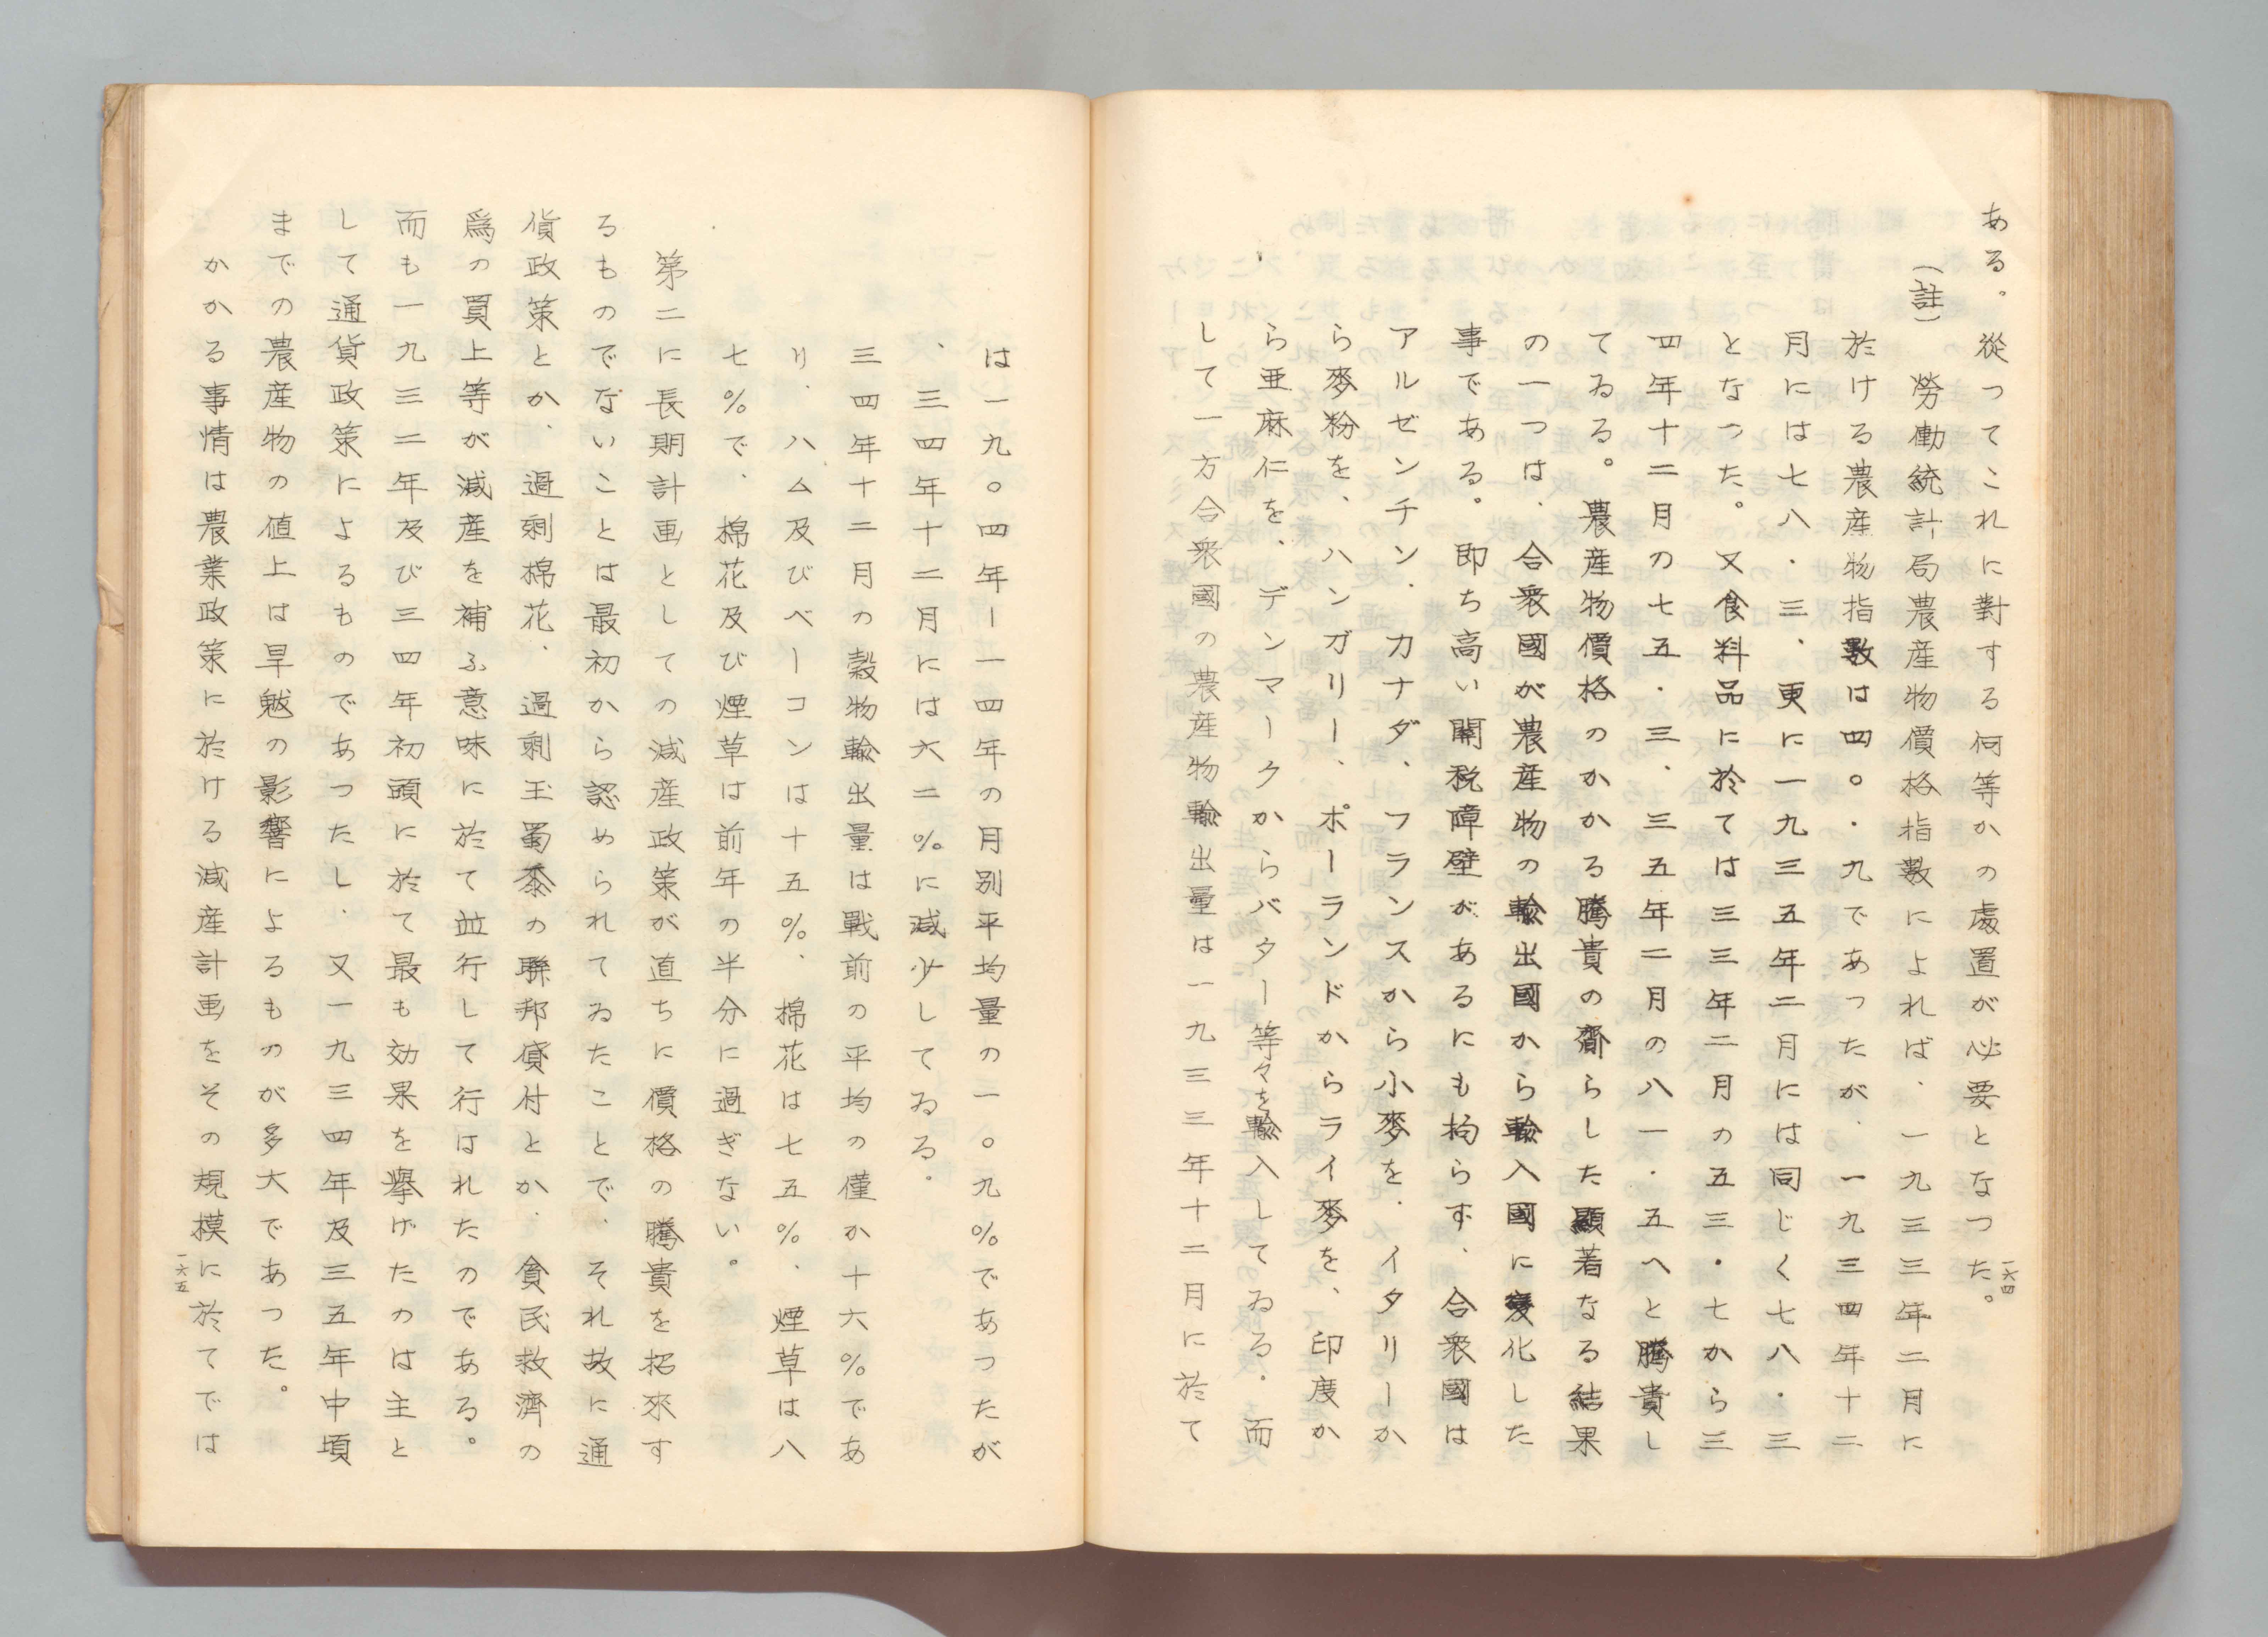 ある。從つてこれに對する何等かの處置が必要となつた。
一六四
(註) 勞働統計局農産物價格指數によれば、一九三三年二月に
於ける農産物指數は四〇・九であつたが、一九三四年十二
月には七八・三、更に一九三五年二月には同じく七八・三
となつた。又食料品に於ては三三年二月の五三・七から三
四年十二月の七五・三、三五年二月の八一・五へと騰貴し
てゐる。農産物價格のかかる騰貴の齎らした顯著なる結果
の一つは、合衆國が農産物の輸出國から輸入國に變化した
事である。即ち高い關税障壁があるにも拘らず、合衆國は
アルゼンチン、カナダ、フランスから小麥を、イタリーか
ら麥粉を、ハンガリー、ポーランドからライ麥を、印度か
ら亜麻仁を、デンマークからバター等々を輸入してゐる。而
して一方合衆國の農産物輸出量は一九三三年十二月に於て
は一九〇四年ー一四年の月別平均量の一〇九%であつたが
、三四年十二月には六二%に減少してゐる。
三四年十二月の穀物輸出量は戰前の平均の僅か十六%であ
り、ハム及びベーコンは十五%、棉花は七五%、煙草は八
七%で、棉花及び煙草は前年の半分に過ぎない。
第二に長期計画としての減産政策が直ちに價格の騰貴を招來す
るものでないことは最初から認められてゐたことで、それ故に通
貨政策とか、過剰棉花、過剰玉蜀黍の聯邦貸付とか、貧民救濟の
爲の買上等が減産を補ふ意味に於て並行して行はれたのである。
而も一九三二年及び三四年初頭に於て最も効果を擧げたのは主と
して通貨政策によるものであつたし、又一九三四年及三五年中頃
までの農産物の値上は旱魃の影響によるものが多大であつた。
かかる事情は農業政策に於ける減産計画をその規模に於てでは
一六五